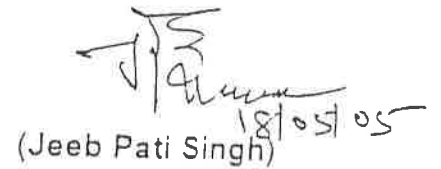 18/05/05
(Jeeb Pati Singh)